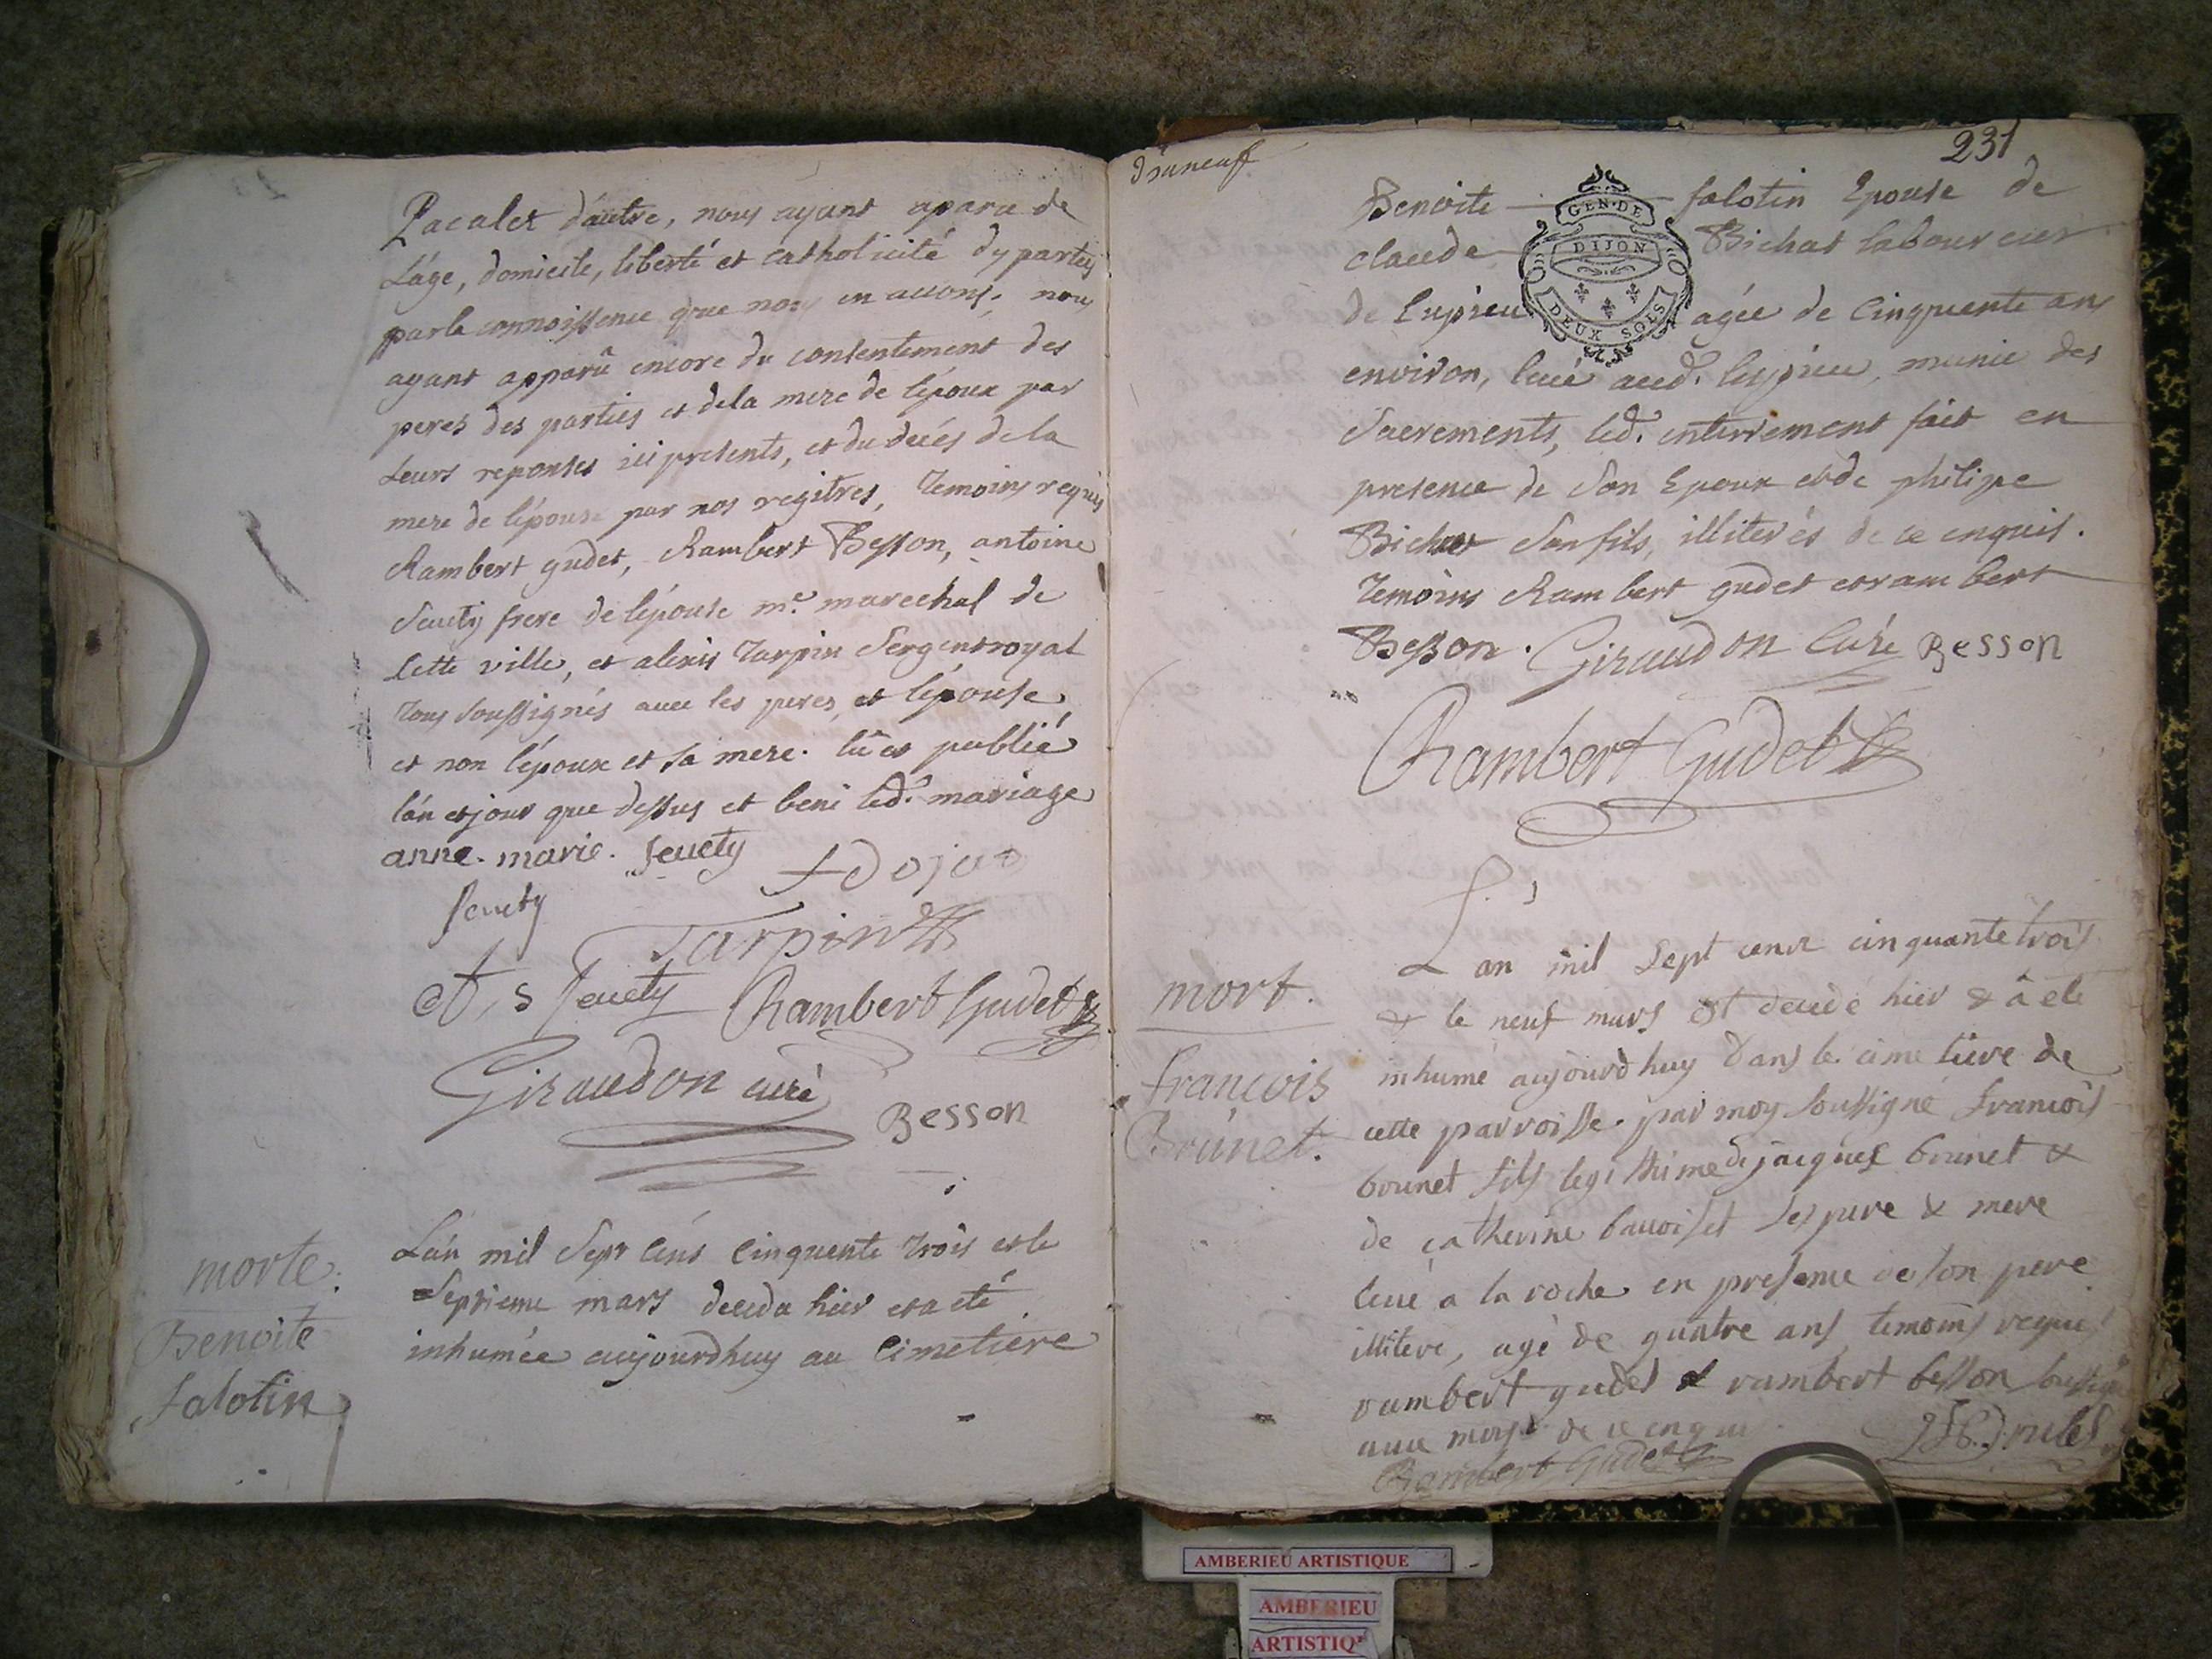 Pacalet d'autre, nous ayant aparu de
l'age, domicile, liberté et catholicité dy parties
par la connoissence que nous en avons. nous
ayant apparû encore du consentement des
peres des parties et dela mere de l'époux par
leurs reponses ici presents, et du decés dela
mere de l'épouse par nos regitres, temoins requis
Rambert gudet, Rambert Besson, antoine
Sevety frere de l'épouse me. marechal de
cette ville, et alexis Tarpin Sergent royal
tous soussignés avec les peres, et l'épouse
et non l'époux et sa mere. lû et publié
l'an et jour que dessus et beni led. mariage
anne. marie. Sevety
Sevety
Tarpin
Sevety Rambert Gudet
Giraudon curé
Besson
morte.
Benoite
Salotin
L'an mil Sept cens cinquente trois et le
Septieme mars deceda hier et a eté
inhumée aujourdhuy au cimetiere
231
GEN. DE
DIJON
DEUX SOLS
Benoite Salotin Epouse de
claude Bichat laboureur
de Lupieu agée de cinquente ans
environ, levé aud. lupieu, munie des
Sacrements, led. enterrement fait en
presence de Son Epoux et de philipe
Bichat Son fils, illiterés de ce enquis.
Temoins Rambert gudet et rambert
Besson. Giraudon Curé Besson
Rambert Gudet
mort.
francois
Brunet.
L'an mil Sept cent cinquante trois
& le neuf mars est decedé hier & à eté
inhumé aujourdhuy dans le cimetiere de
cette parroisse. par moy soussigné francois
brunet fils legithime de jacques brunet &
de catherine ses pere & mere
levé a la roche en presence de son pere
illiteré, agé de quatre ans temoins requis
rambert gudet & rambert besson
avec moy de ce enquis
Rambert Gudet
AMBERIEU ARTISTIQUE
AMBERIEU
ARTISTIQ